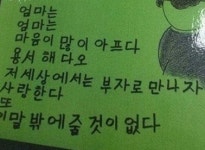 엄마는
엄마는
마음이 많이 아프다
용서 해 다오
저세상에서는 부자로 만나자
사랑한다
또
이말 밖에 줄 것이 없다